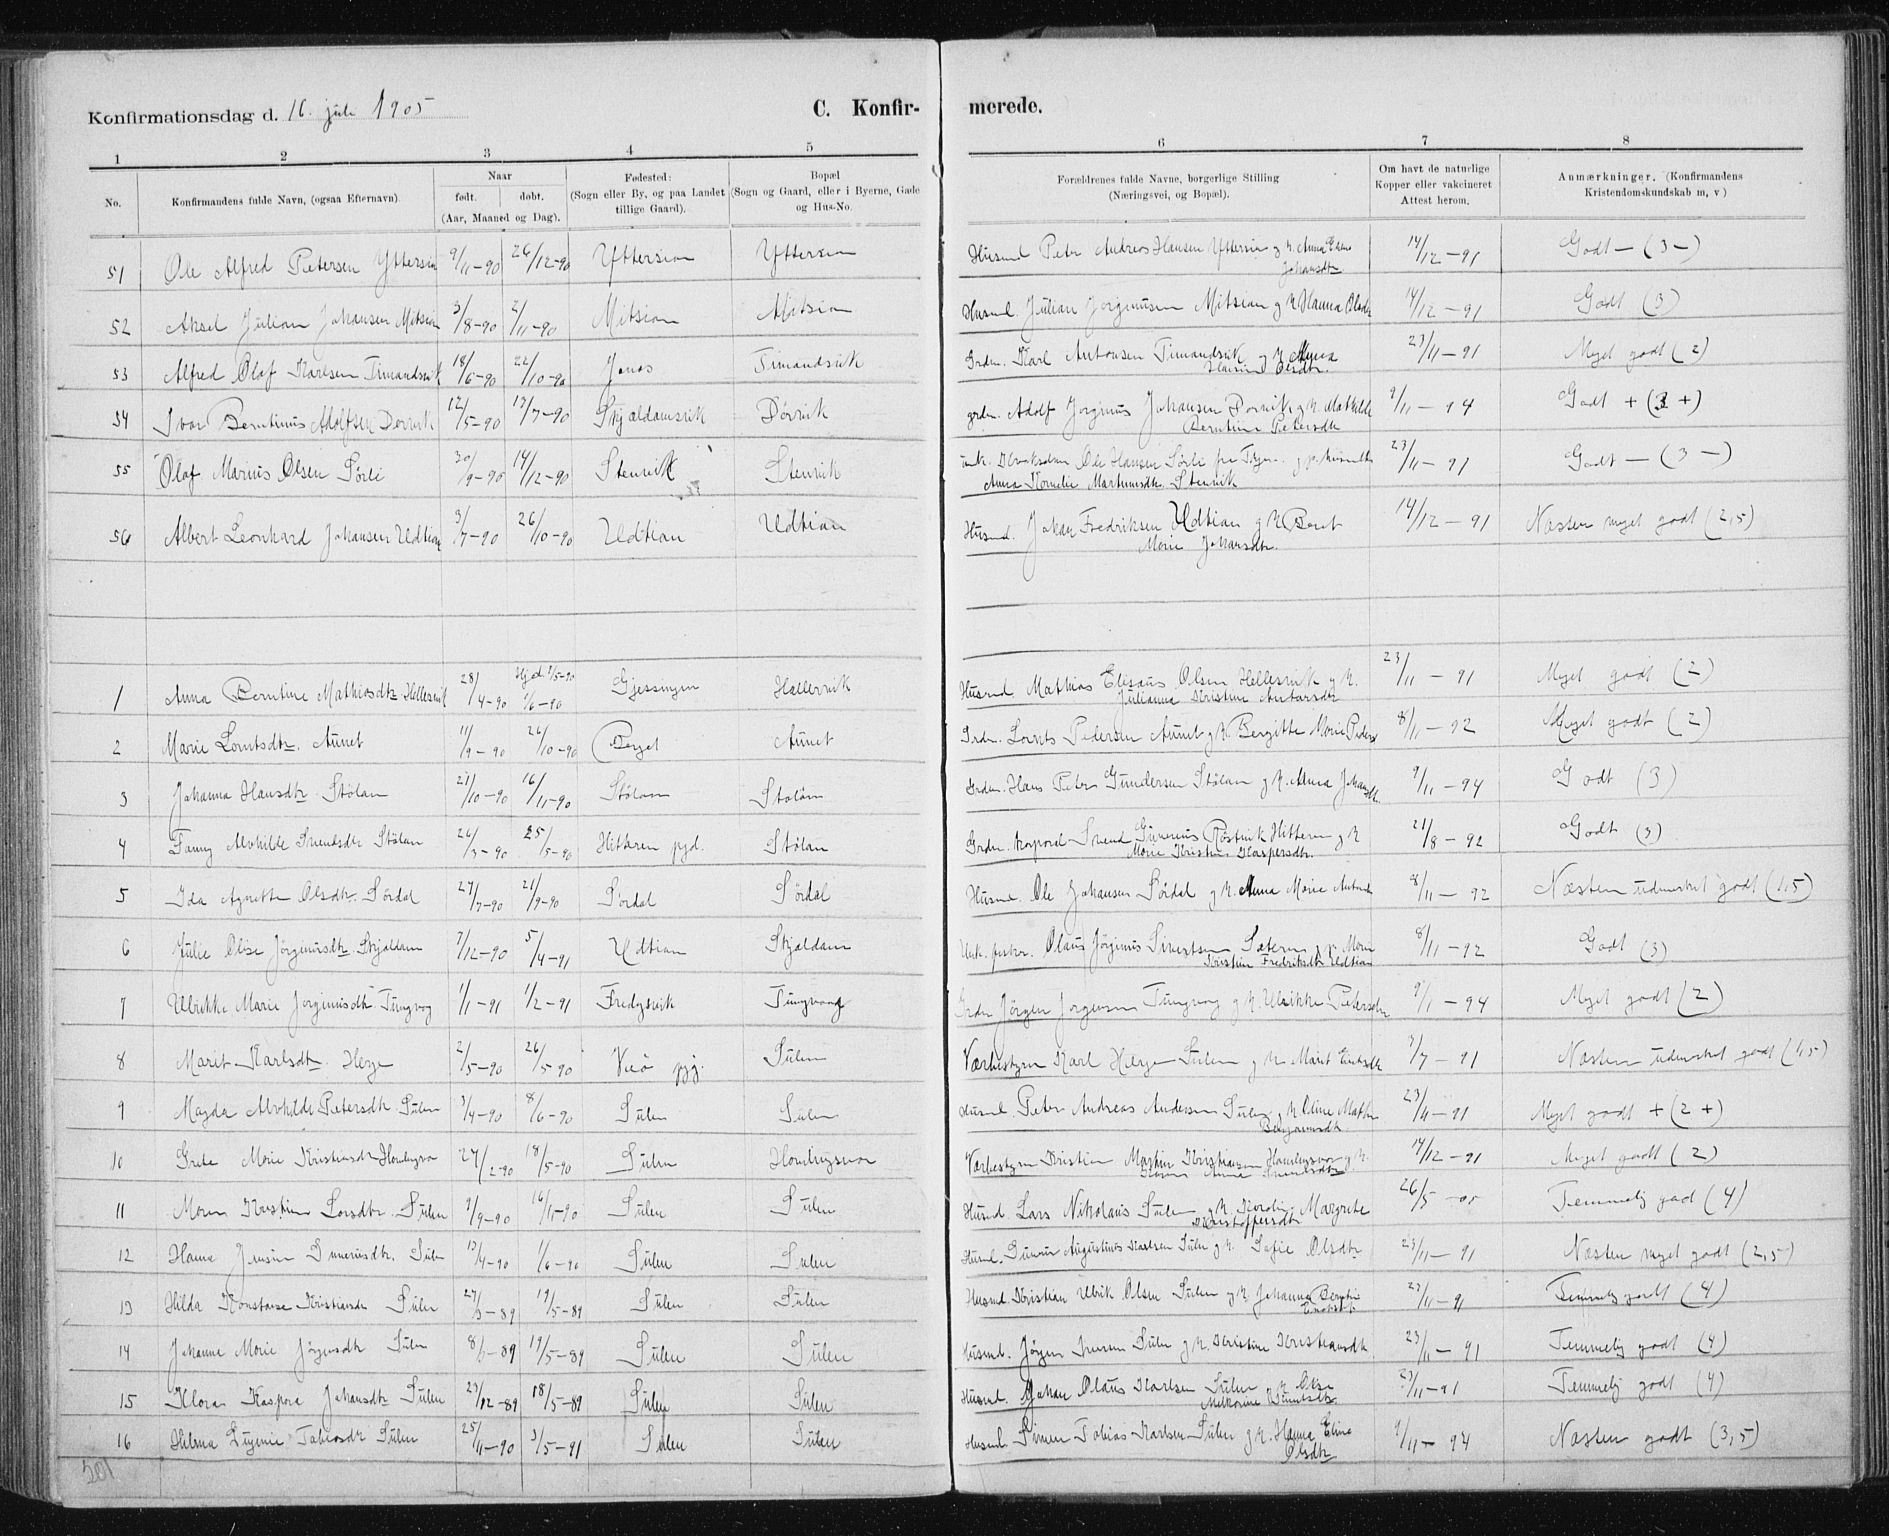 Konfirmationsdag d. 16. juli 1905 C. Konfir- merede.
1 2 3 4 5 6 7 8
No. Konfirmandens fulde Navn, (ogsaa Efternavn) Naar født. døbt. (Aar, Maaned og Dag). Fødested: (Sogn eller By, og paa Landet tillige Gaard). Bopæl (Sogn og Gaard, eller i Byerne, Gade og Hus-No. Forældrenes fulde Navne, borgerlige Stilling (Næringsvei, og Bopæl). Om havt de naturlige Kopper eller vakcineret Attest herom. Anmærkninger. (Konfirmandens Kristendomskundskab m, v)
51 Ole Alfred Petersen Yttersian 9/11-90 26/12-90 Yttersian Yttersian Husmd Peter Andreas Hansen Yttersian g K. Anna Johansdtr. 14/12-91 Godt - (3-)
52 Aksel Julian Johansen Mitsian 3/8-90 2/11-90 Mitsian Mitsian Husmd. Julian Jørginusen Mitsian g K Hanna Olsdtr 14/12-91 Godt (3)
53 Alfred Olaf Karlsen Timandsvik 18/6-90 22/10-90 Timandsvik Grdm. Karl Antonsen Timandsvik g K Anna Olsdtr. 23/11-91 Meget godt (2)
54 Ivar Berntinus Adolfsen Dørvik 12/5-90 13/7-90 Skjaldamsvik Dørvik grdm. Adolf Jørginus Johansen Dørvik g K. Mathilde Berntine Petersdtr 9/11-94 Godt + (3+)
55 Olaf Marius Olsen Sørli 30/9-90 14/12-90 Stenvik Stenvik Ole Hansen Sørli fra Anna Kornelie Martinusdtr. Stenvik 23/11-91 Godt - (3-)
56 Albert Leonhard Johansen Udtian 3/7-90 26/10-90 Udtian Udtian Husmd. Johan Fredriksen Udtian g K Beret Marie Johansdtr. 14/12-91 Næsten meget godt (2,5)
1 Anna Berntine Mathiasdtr. Hellesvik 28/4-90 Hjd. 4/5-90 1/6-90 Gjessingen Hellesvik Husmd Mathias Elisæus Olsen Hellesvik g K. Julianna Kristine Antonsdtr 23/11-91 Meget godt (2)
2 Marie Lorntsdtr. Aunet 11/9-90 26/10-90 Berget Aunet Grdm. Lornts Pedersen Aunet g K Bergitte Marie Pedersdtr 8/11-92 Meget godt (2)
3 Johanna Hansdtr Stølan 27/10-90 16/11-90 Stølan Stølan Grdm. Hans Peter Gundersen Stølan g K. Anna Johansdtr. 9/11-94 Godt (3)
4 Fanny Alvhilde Svendsdtr Stølan 26/3-90 25/5-90 Hitteren pgd. Stølan Grdm. Korporal Svend Hitteren g K Marie Kristine Kaspersdtr. 21/8-92 Godt (3)
5 Ida Agnette Olsdtr. Sørdal 27/7-90 21/9-90 Sørdal Sørdal Husmd. Ole Johansen Sørdal g K. Anna Marie 8/11-92 Næsten udmerket godt (1,5)
6 Julie Olise Jørginusdtr Skjaldam 7/12-90 5/4-91 Udtian Skjaldam Olaus Jørginus Sivertsen Sæteren g p. Marie Kristine Fredriksdtr Udtian 8/11-92 Godt (3)
7 Ulrikke Marie Jørginusdtr Tungvog 1/1-91 1/2-91 Tungvaag Grdm Jørgen Jørgensen Tungvog g K. Ulrikke Petersdtr 9/1-94 Meget godt (2)
8 Marit Karlsdtr. Herje 2/5-90 26/5-90 Sulen Værbestyrer Karl Herje Sulen g K Marit 3/7-91 Næsten udmerket godt (1,5)
9 Magda Alvhilde Petersdtr Sulen 3/4-90 8/6-90 Sulen Sulen Husmd. Peter Andreas Andersen Sulen g K Oline 23/11-91 Meget godt + (2+)
10 Grete Marie Kristiansdtr 27/2-90 18/5-90 Sulen Værbestyrer Kristian Martin Kristiansen g K. 14/12-91 Meget godt (2)
11 Kristine Larsdtr. Sulen 9/9-90 16/11-90 Sulen Sulen Husmd. Lars Nikolaus Sulen g K Margrete Kristoffersdtr 26/5-05 Temmelig god (4)
12 Hanna Jensine Gunneriusdtr. Sulen 13/4-90 1/6-90 Sulen Sulen Husmd. Augustinus Karlsen Sulen g K. Sofie Olsdtr 23/11-91 Næsten meget godt (2,5)
13 Hilda Konstanse Kristiansdtr Sulen 27/3-89 19/5-89 Sulen Sulen Husmd. Kristian Ulrik Olsen Sulen g K Johanna 23/11-91 Temmelig godt (4)
14 Johanne Marie Jørgensdtr Sulen 19/5-89 Sulen Sulen Husmd. Jørgen Iversen Sulen g K. Kristine Kristiansdtr 23/11-91 Temmelig godt (4)
15 Klora Kaspora Johansdtr Sulen 23/12-89 18/5-89 Sulen Sulen Husmd. Johan Olaus Karlsen Sulen g K Olsa 23/11-91 Temmelig godt (4)
16 Helma Eugenie Tobiasdtr Sulen 25/11-90 3/5-91 Sulen Sulen Husmd. Simen Tobias Karlsen Sulen g K. Hanna Eline Olsdtr 9/11-94 Næsten godt (3,5)
501